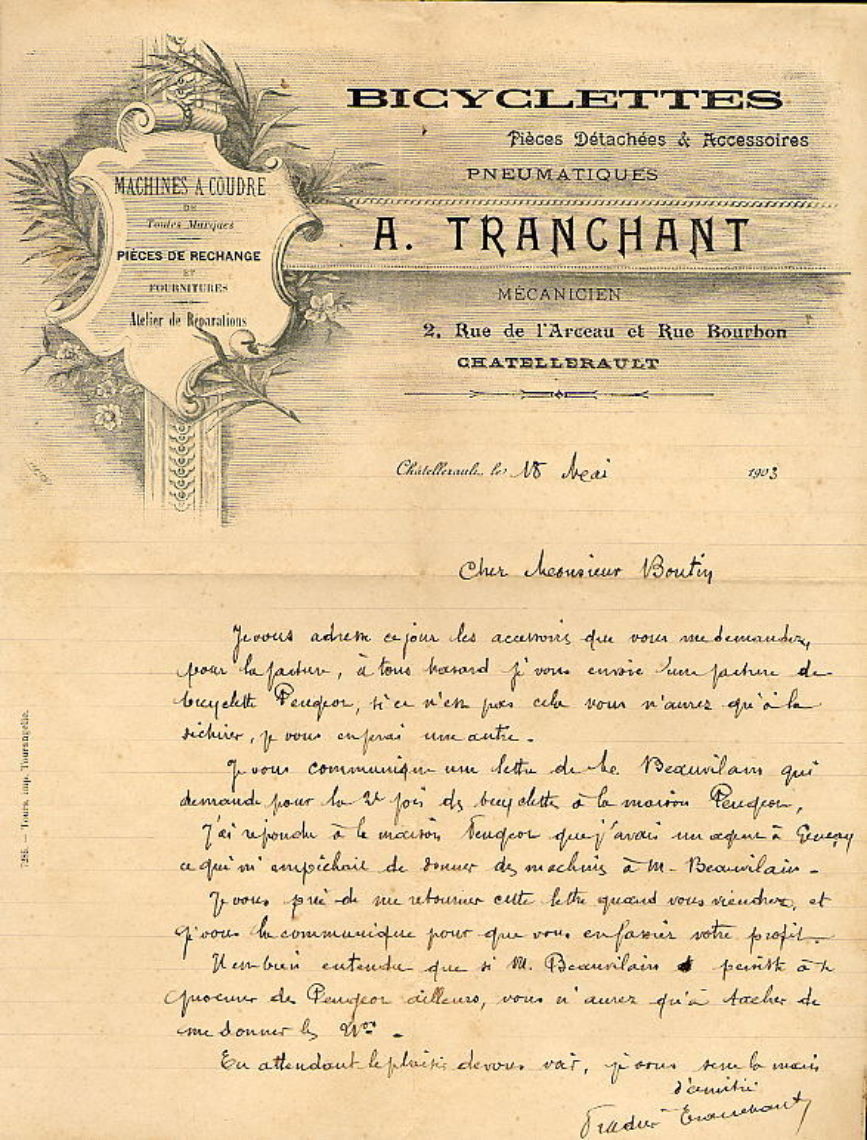 BICYCLETTES
Pièces Détachées & Accessoires
PNEUMATIQUES
A. TRANCHANT
MÉCANICIEN
2, Rue de l'Arceau et Rue Bourbon
CHATELLERAULT
MACHINES A COUDRE
DE
Toutes Marques
PIÈCES DE RECHANGE
ET
FOURNITURES
Atelier de Réparations
Châtellerault, le 18 Mai 1903
Cher Monsieur Boutin
Je vous adresse ce jour les accessoires que vous me demandez,
pour la facture, à tous hasard je vous envoie une facture de
bicyclette Peugeot, si ce n'est pas cela vous n'aurez qu'à la
déchirer, je vous enferai une autre.
Je vous communique une lettre de Beauvilain qui
demande pour la 2e fois des bicyclette à la maison Peugeot,
J'ai repondu à la maison Peugeot que j'avais un agent à Gençay
ce qui m'empêchait de donner des machines à M. Beauvilain.
Je vous prie de me retourner cette lettre quand vous viendrez, et
je vous la communique pour que vous enfassiez votre profit.
Il est bien entendu que si M. Beauvilain persiste à se
procurer des Peugeot ailleurs, vous n'aurez qu'à tacher de
me donner les Nos.
En attendant le plaisir de vous voir, je vous serre la main
d'amitié
Tranchant
7285. — Tours, imp. Tourangelle.